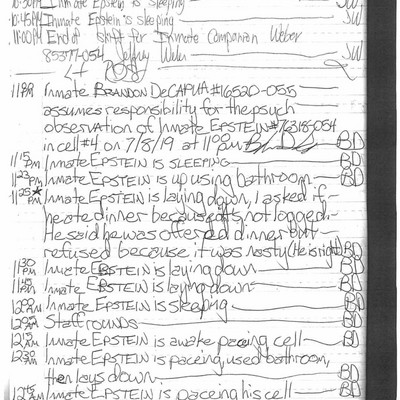 10:30PM Inmate Epstein is sleeping SW
10:45PM Inmate Epstein's sleeping SW
11:00PM End of shift for Inmate Companion Weber
85377-054 Jeffrey Weber SW
11:00 PM Inmate BRANDON DeCAPUA #16520-055
assumes responsibility for the psych
observation of Inmate EPSTEIN #76318-054
in cell #4 on 7/8/19 at 11:00pm BD
11:15 PM Inmate EPSTEIN is SLEEPING BD
11:23 PM Inmate EPSTEIN is up using bathroom BD
11:25* PM Inmate EPSTEIN is laying down, I asked if
he ate dinner because it's not logged.
He said he was offered dinner but
refused because it was nasty (He is right) BD
11:30 PM Inmate EPSTEIN is laying down BD
11:45 PM Inmate EPSTEIN is laying down BD
12:00 AM Inmate EPSTEIN is sleeping BD
AM Staff rounds BD
12:15 AM Inmate EPSTEIN is awake pacing cell BD
12:30 AM Inmate EPSTEIN is pacing, used bathroom,
then lays down. BD
12:45 AM Inmate EPSTEIN is pacing his cell BD